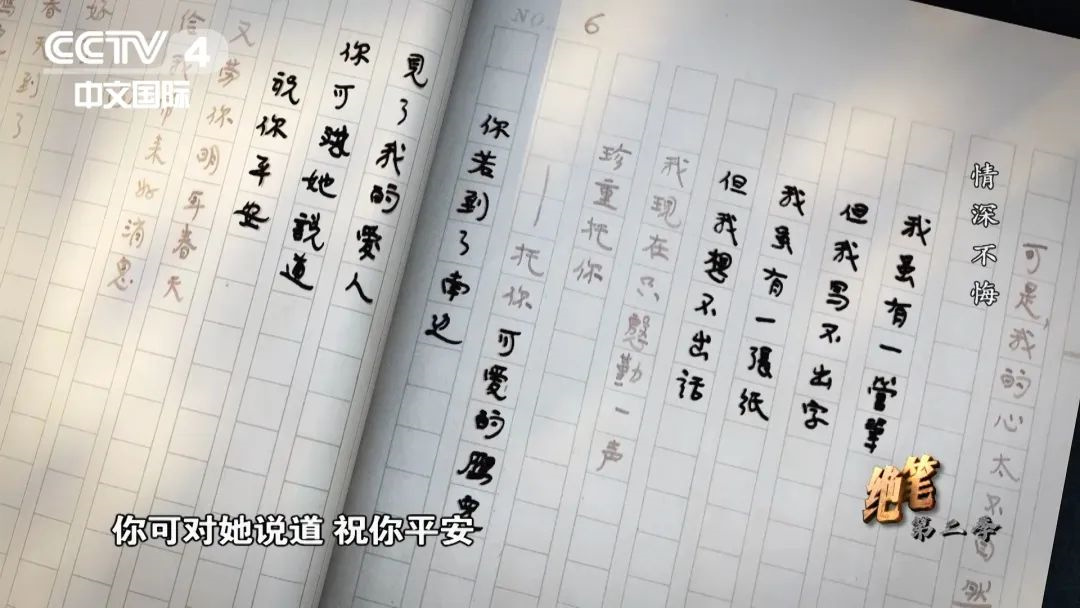 CCTV 4
中文国际
NO. 6
可是我的心太不自然
情深不悔
我虽有一管筆
但我写不出字
我虽有一張纸
但我想不出话
我现在只慇勤一声
珍重托你
——托你可爱的
你若到了南边
見了我的愛人
你可對她說道
祝你平安
又劳你明年春天
给我带来好消息
春
到了
好
绝笔
第二季
你可对她说道 祝你平安